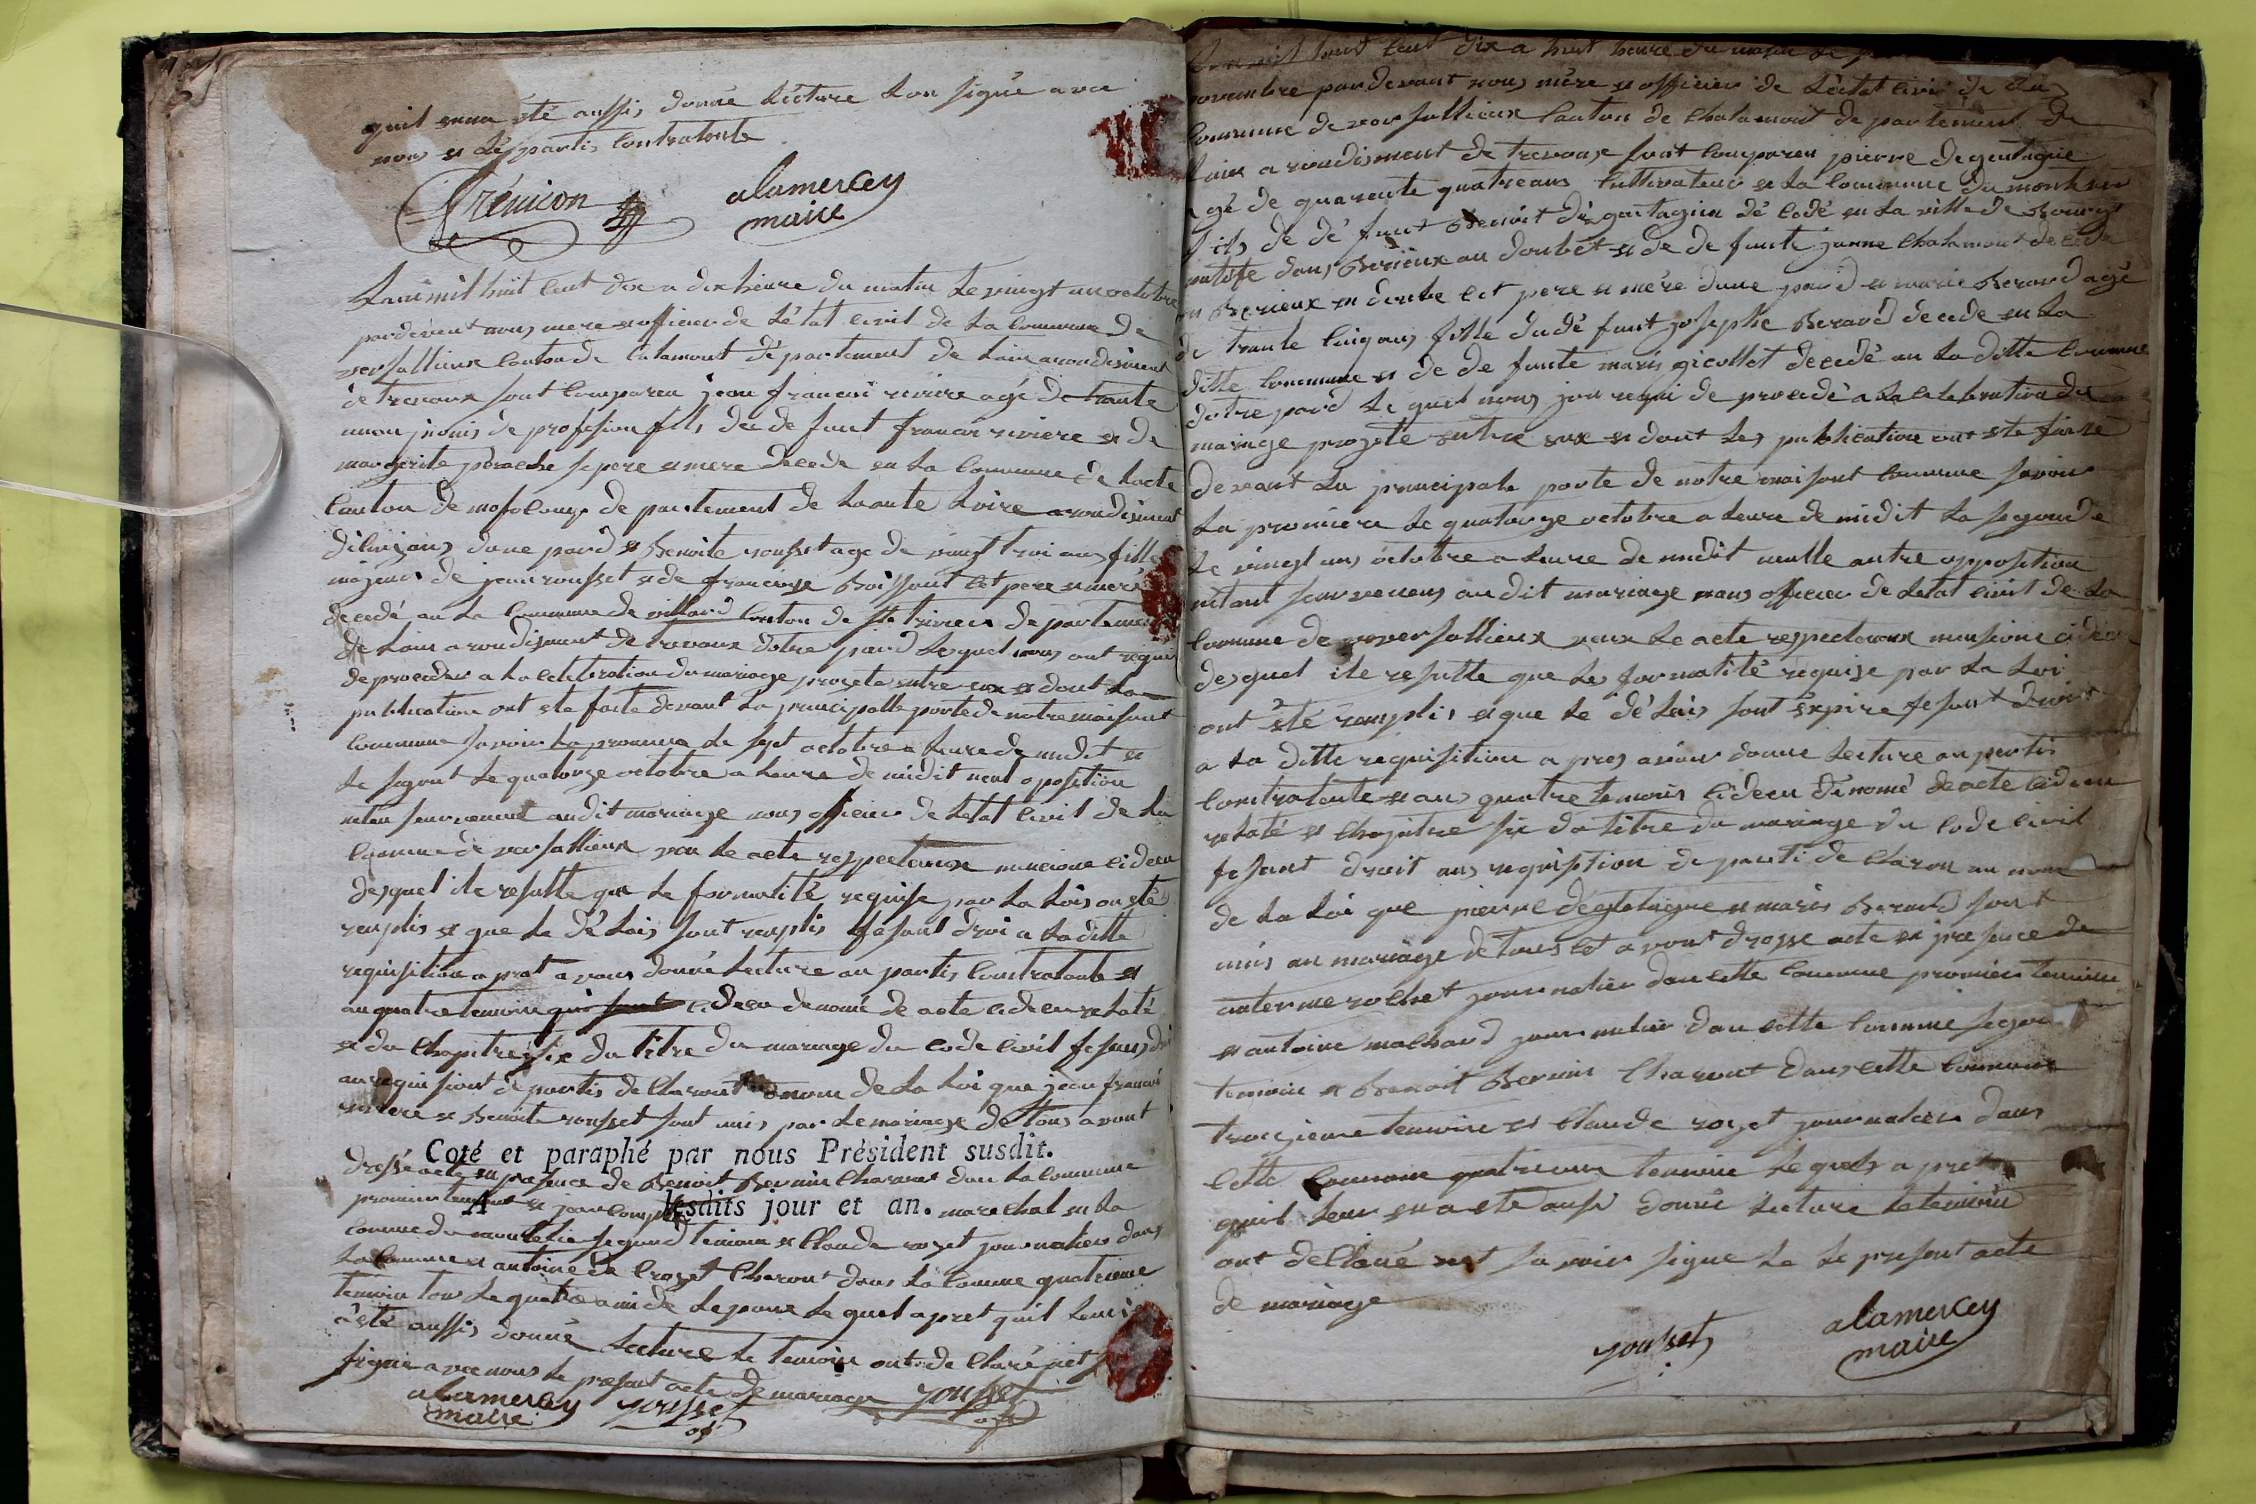 quil en na été aussis donné Lecture Lon signé avec
nous et Les partis Contratante
frémion alamercey
maire
Lan mil huit Cent dix a dix heure du matin Le vingt un octobre
pardevent nous mere et officier de Létat civil de La Commune de
versallieux Canton de Calamont département de Lain arondisment
de trevoux sont Comparu jean francoi riviere agé de trante
de profesion fils de de funt francoi riviere et de
margerite se pere et mere decede en La Commune de
Canton de de partement de haute Loire arondisment
dune pard et Benoite rousset age de vingt troi ans fille
majeur de jean rousset et de francoise Boissont Cet pere et mere
decedé an La Commune de villard Canton de ste trivier departement
de Lain arondisment de trevoux dotre pard Lesquel nous ont requi
de proceder a La celebration du mariage progete entre eux et dont La
publication ont ete faite devant La principalle porte de notre maisont
Commune savoir La premiere Le sept octobre a heure de midit et
Le segont Le quatorze octobre a heure de midit neul oposition
survenent audit mariage nous officier de Letat Civil de La
Commune de versallieux veu Le acte respectueux mencione cideu
desquel ile resulte que Le formalité requise par La Lois on été
remplis et que Le dé Lais sont remplis fesant droi a La ditte
requisition a pret avoir donné Lecture au partis Contratante et
au quatre temoin cideu denomé de acte cideu relaté
et du Chapitre six du titre du mariage du Code Civil fesans
de partis declaront au nom de La Loi que jean francoi
riviere et Benoite rousset sont unis par Le mariage de tous avont
Coté et paraphé par nous Président susdit.
dressé acte en presence de Benoit Bernin Charont dan La Commune
premier temoin et jean
A lesdits jour et an. marechal en La
Commune du segond temoin et Claude royet journalier dans
La Commune et antoine de Crozet Charont dans La Comune quatrieme
temoin tou Le quatre ami de Lepoux Le quel a pret quil Leur
a été aussis donné Lecture Le temoin ont de Claré net
signe avec nous Le present acte de mariage rousset
alamercey rousset
maire

Lan mil huit Cent dix a huit heure du matin Le
novembre pardevant nous mere et officier de Létat Civil de La
Commune de versallieux Canton de Chalamont de partement de
Lain arondisment de trevouse sont Comparu pierre degoutagne
agé de quarente quatre ans Cultivateur et La Commune du
fils de dé funt Benoit de goutagne dé cedé en La ville de Bourg
dans et de de funte janne Chalamont decede
en et dombe Cet pere et mere dune pard et marie Berard agé
de trante Cinq ans fille du dé funt josephe Berard decede en La
ditte Commune et de de funte marie gicollet decedé an La ditte Commune
dotre pard Le quel nous requi de procedé a La celebration du
mariage progeté entre eux et dont Les publication ont ete faite
devant La principale porte de notre maisont Commune savoir
La premiere Le quatorze octobre a heure de midit La segonde
Le vingt uns octobre a heure de midit nulle autre opposition
netant survenens audit mariage nous officier de Letat Civil de La
Commune de versallieux veux Le acte respectueux mensione cideu
desquel ile resulte que Les formalité requise par La Loi
ont été remplis et que Le dé Lais sont expire fesant droit
a La ditte requisition a pres avoir donne Lecture au partis
Contratante et aus quatre temoin cideu dénomé de acte cideu
relaté et Chapitre six du titre du mariage du Code Civil
fesant droit aus requisition de parti de Claron au nom
de La Loi que pierre degoutagne et marie Berard sont
unis an mariage de tous Cet avont drosse acte en presence de
antermerochet journalier dan cette Commune premier temoin
et antoine malhard journalier dan cette Commune segon
temoin et Benoit Bernin Charont dans cette Commune
troizieme temoin et Claude royet journalier dans
Cette Commune quatrieme temoin Le quels a pret
quil Leur en a ete ausi donné Lecture Le temoin
ont declaré net savoir signe Le present acte
de mariage
rousset alamercey
maire